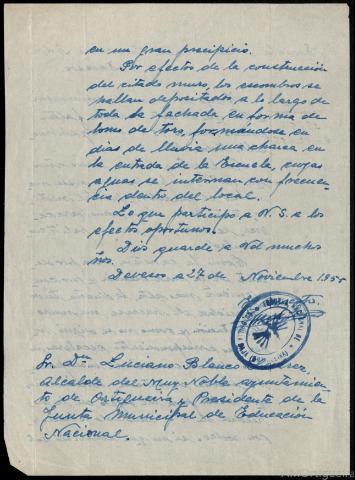 en un gran precipicio.
Por efectos de la construcción
del citado muro, los escombros se
hallan depositados a lo largo de
toda la fachada en forma de
lomo de toro, formándose en
días de lluvia una charca en
la entrada de la Escuela, cuyas
aguas se internan con frecuen
cia dentro del local.
Lo que participo a V.S. a los
efectos oportunos.
Dios guarde a Vd muchos
años.
Devesos a 27 de Noviembre 1955
Sr. Dn. Luciano Blanco
Alcalde del Muy Noble Ayuntamien
to de Ortigueira y Presidente de la
Junta Municipal de Educación
Nacional.